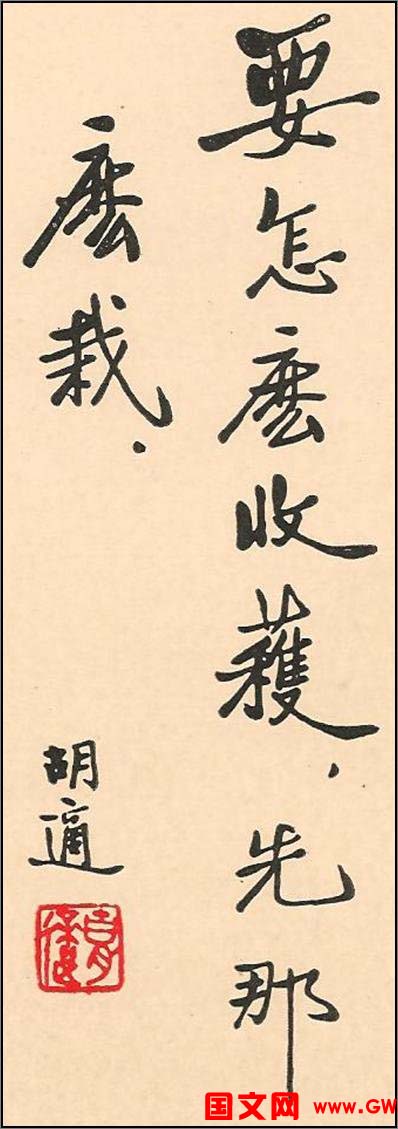 要怎麽收穫，先那
麽栽．
胡適
国文网 www.GW